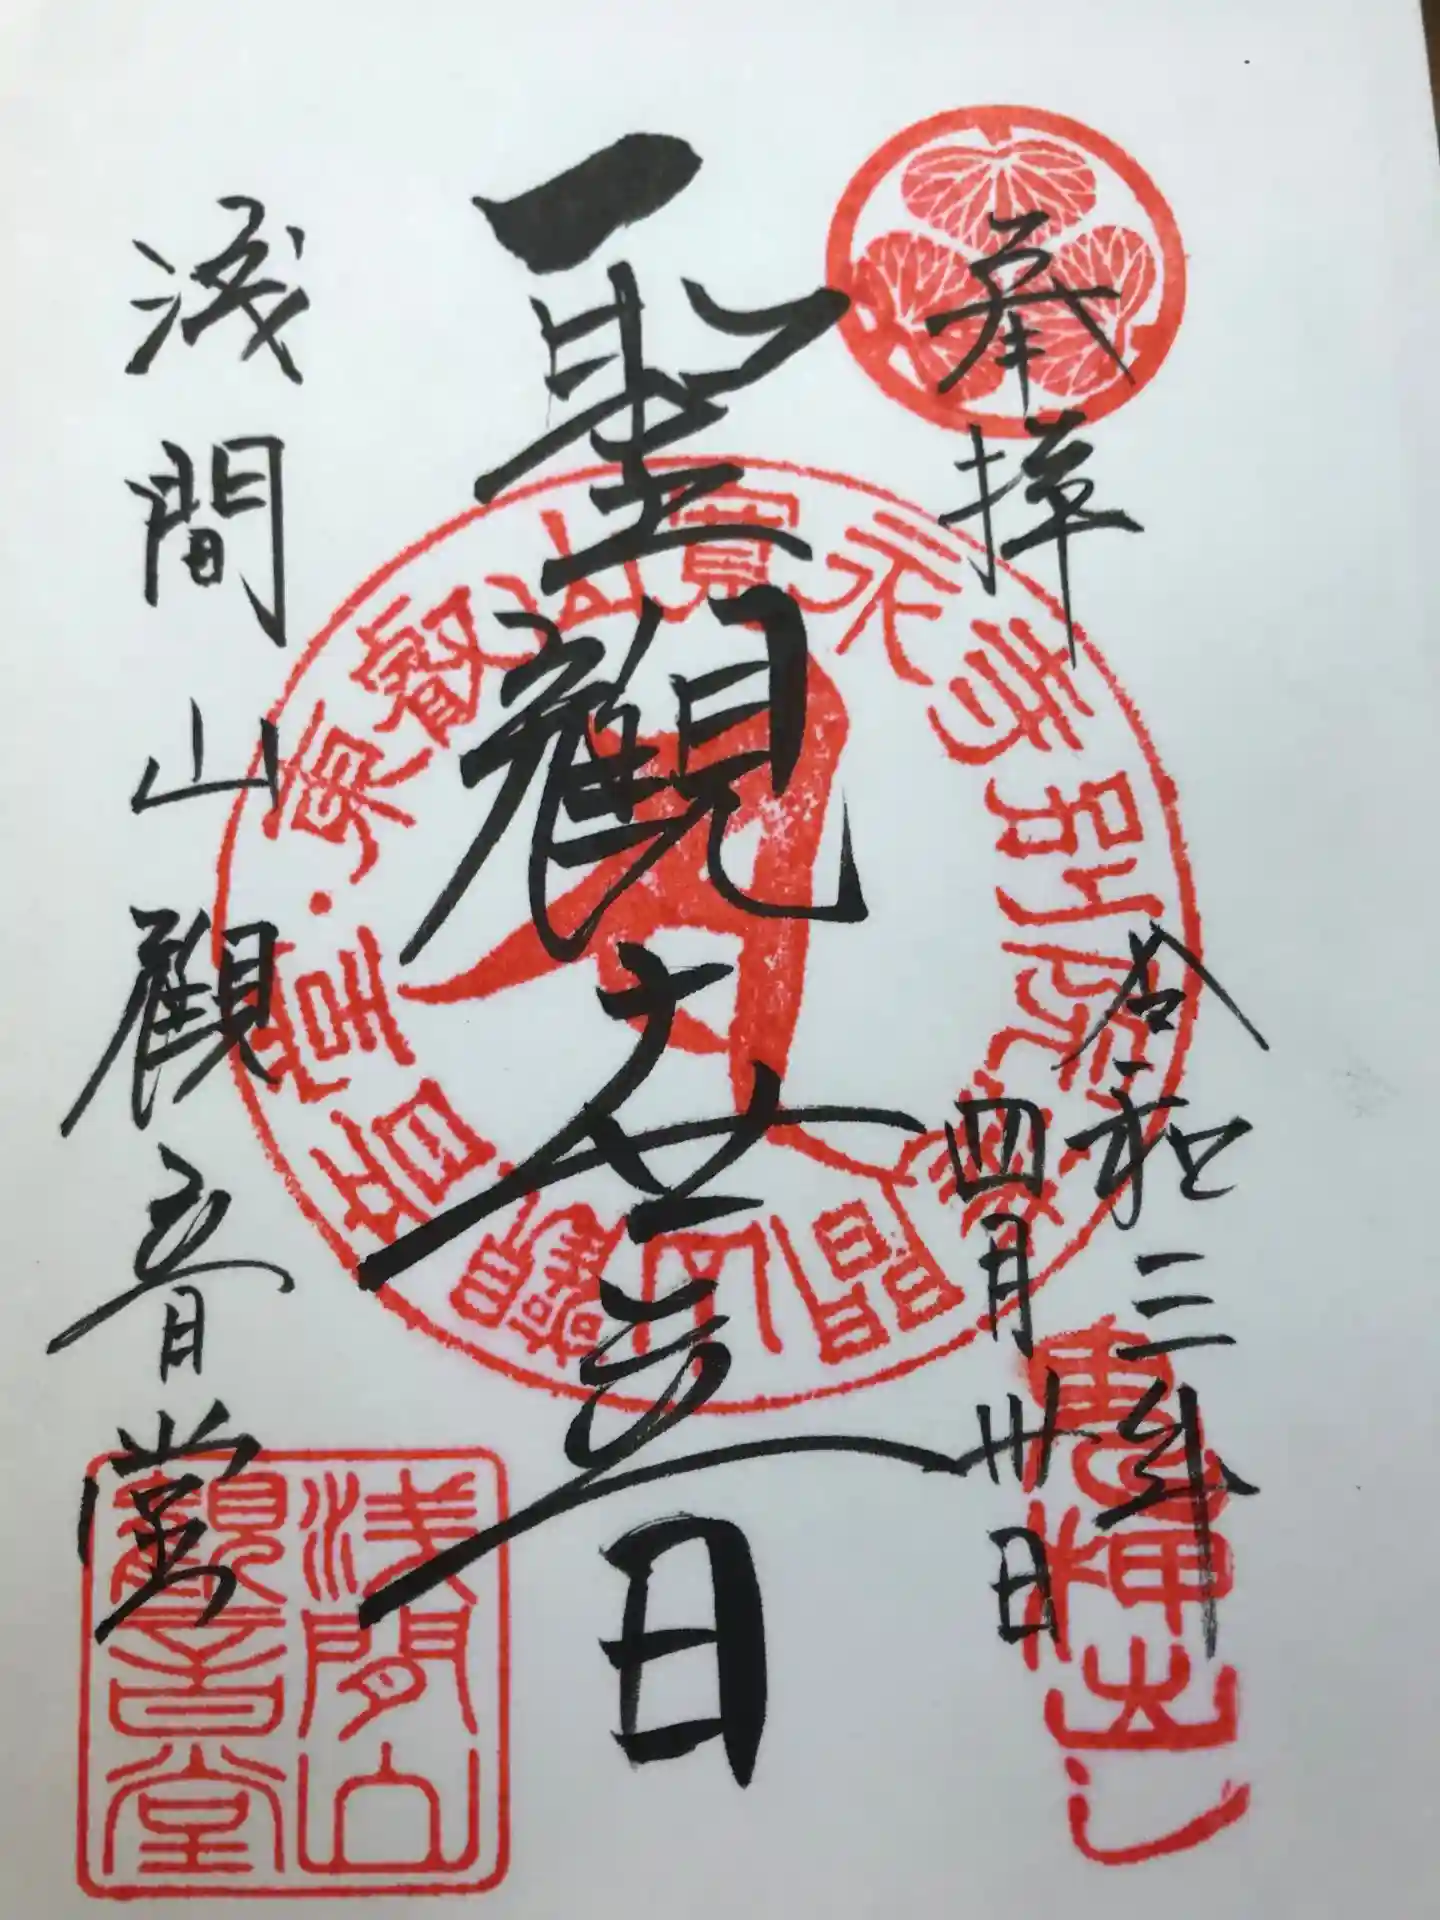 承拝
令和三年
四月卅日
聖觀世音
浅間山觀音堂
東叡山寛元寺別院浅間山觀音堂
浅間山
觀音堂